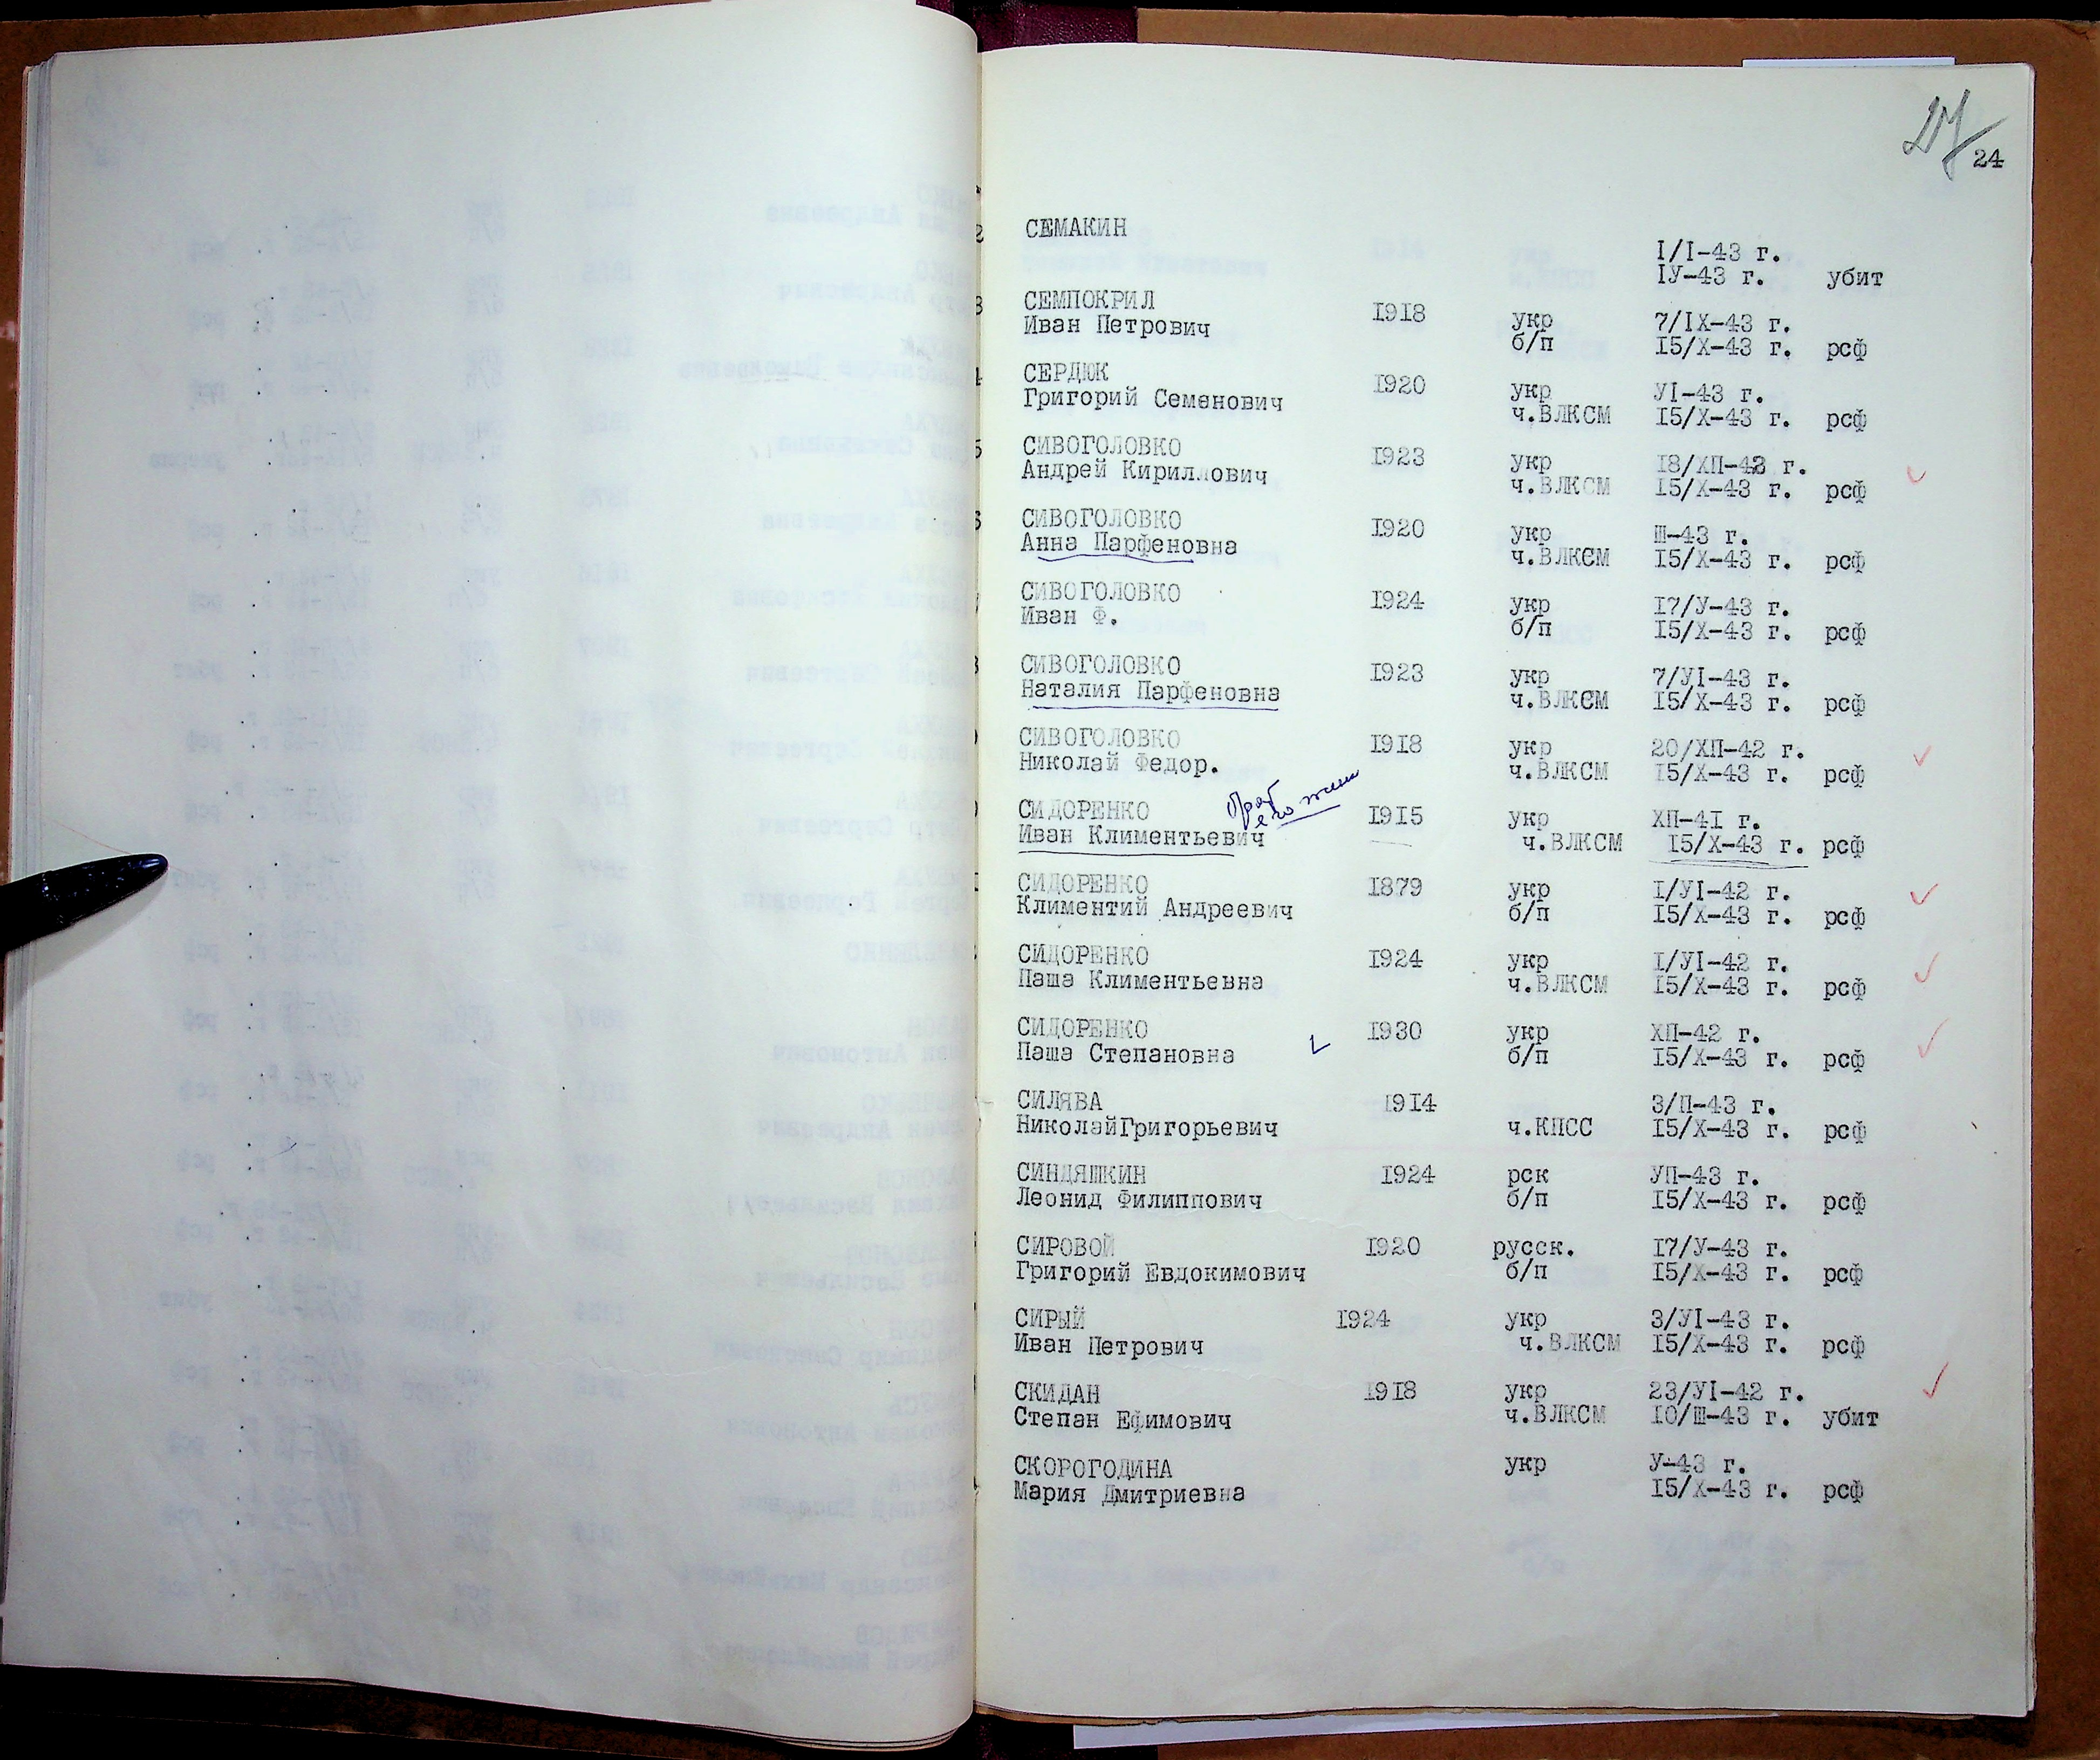 24
СЕМАКИН
I/I-43 г.
IУ-43 г. убит
СЕМПОКРИЛ 1918 укр 7/IX-43 г.
Иван Петрович б/п I5/X-43 г. рсф
СЕРДЮК 1920 укр УI-43 г.
Григорий Семенович ч.ВЛКСМ I5/X-43 г. рсф
СИВОГОЛОВКО 1923 укр I8/ХП-42 г.
Андрей Кириллович ч.ВЛКСМ I5/X-43 г. рсф
СИВОГОЛОВКО 1920 укр Ш-43 г.
Анна Парфеновна ч.ВЛКСМ I5/X-43 г. рсф
СИВОГОЛОВКО 1924 укр I7/У-43 г.
Иван Ф. б/п I5/X-43 г. рсф
СИВОГОЛОВКО 1923 укр 7/УI-43 г.
Наталия Парфеновна ч.ВЛКСМ I5/X-43 г. рсф
СИВОГОЛОВКО 1918 укр 20/ХП-42 г.
Николай Федор. ч.ВЛКСМ I5/X-43 г. рсф
СИДОРЕНКО 1915 укр ХП-4I г.
Иван Климентьевич ч.ВЛКСМ I5/X-43 г. рсф
СИДОРЕНКО 1879 укр I/УI-42 г.
Климентий Андреевич б/п I5/X-43 г. рсф
СИДОРЕНКО 1924 укр I/УI-42 г.
Паша Климентьевна ч.ВЛКСМ I5/X-43 г. рсф
СИДОРЕНКО 1930 укр ХП-42 г.
Паша Степановна б/п I5/X-43 г. рсф
СИЛЯВА 1914 3/П-43 г.
НиколайГригорьевич ч.КПСС I5/X-43 г. рсф
СИНДЯШКИН 1924 рск УП-43 г.
Леонид Филиппович б/п I5/X-43 г. рсф
СИРОВОЙ 1920 русск. I7/У-43 г.
Григорий Евдокимович б/п I5/X-43 г. рсф
СИРЫЙ 1924 укр 3/УI-43 г.
Иван Петрович ч.ВЛКСМ I5/X-43 г. рсф
СКИДАН 1918 укр 23/УI-42 г.
Степан Ефимович ч.ВЛКСМ I0/Ш-43 г. убит
СКОРОГОДИНА укр У-43 г.
Мария Дмитриевна I5/X-43 г. рсф